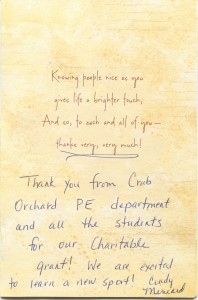 Knowing people nice as you
gives life a brighter touch,
And so, to each and all of you—
thanks very, very much!
Thank you from Crab
Orchard PE department
and all the students
for our Charitable
grant! We are excited
to learn a new sport! Cindy